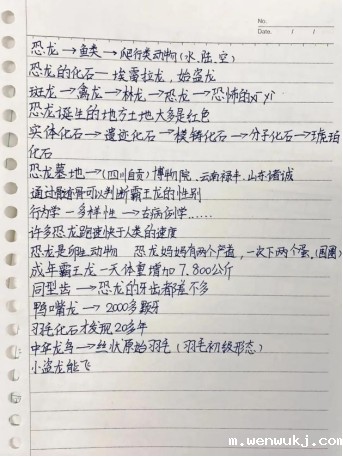 No.
Date.   /   /
恐龙→鱼类→爬行类动物(水.陆.空)
恐龙的化石—埃雷拉龙，始盗龙
斑龙→禽龙→林龙→恐龙→恐怖的xī yì
恐龙诞生的地方土地大多是红色
实体化石→遗迹化石→模铸化石→分子化石→琥珀
化石
恐龙墓地→(四川自贡)博物院、云南禄丰、山东诸诚
通过骸骨可以判断霸王龙的性别
行为学—多样性→古病剑学……
许多恐龙跑速快于人类的速度
恐龙是卵生动物 恐龙妈妈有两个产道，一次下两个蛋、(圆圈)
成年霸王龙一天体重增加7.800公斤
同型齿→恐龙的牙齿都差不多
鸭嘴龙→2000多颗牙
羽毛化石才发现20多年
中华龙鸟→丝状原始羽毛(羽毛初级形态)
小盗龙能飞
m.wenwukj.com